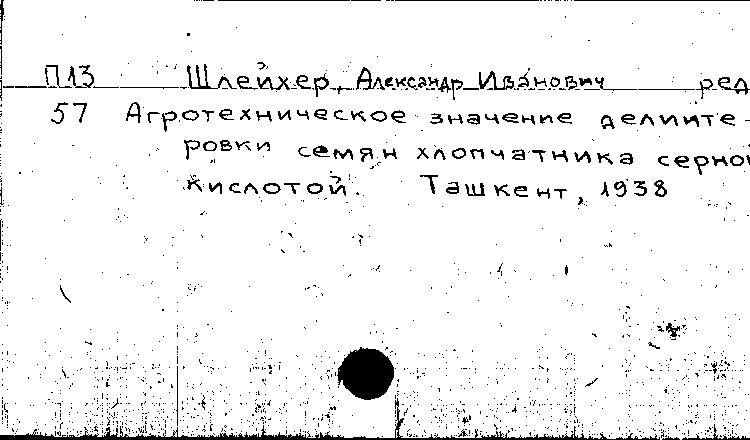 П13 Шлейхер, Александр Иванович ред
57 Агротехническое значение делинте-
ровки семян хлопчатника серной
кислотой. Ташкент, 1938